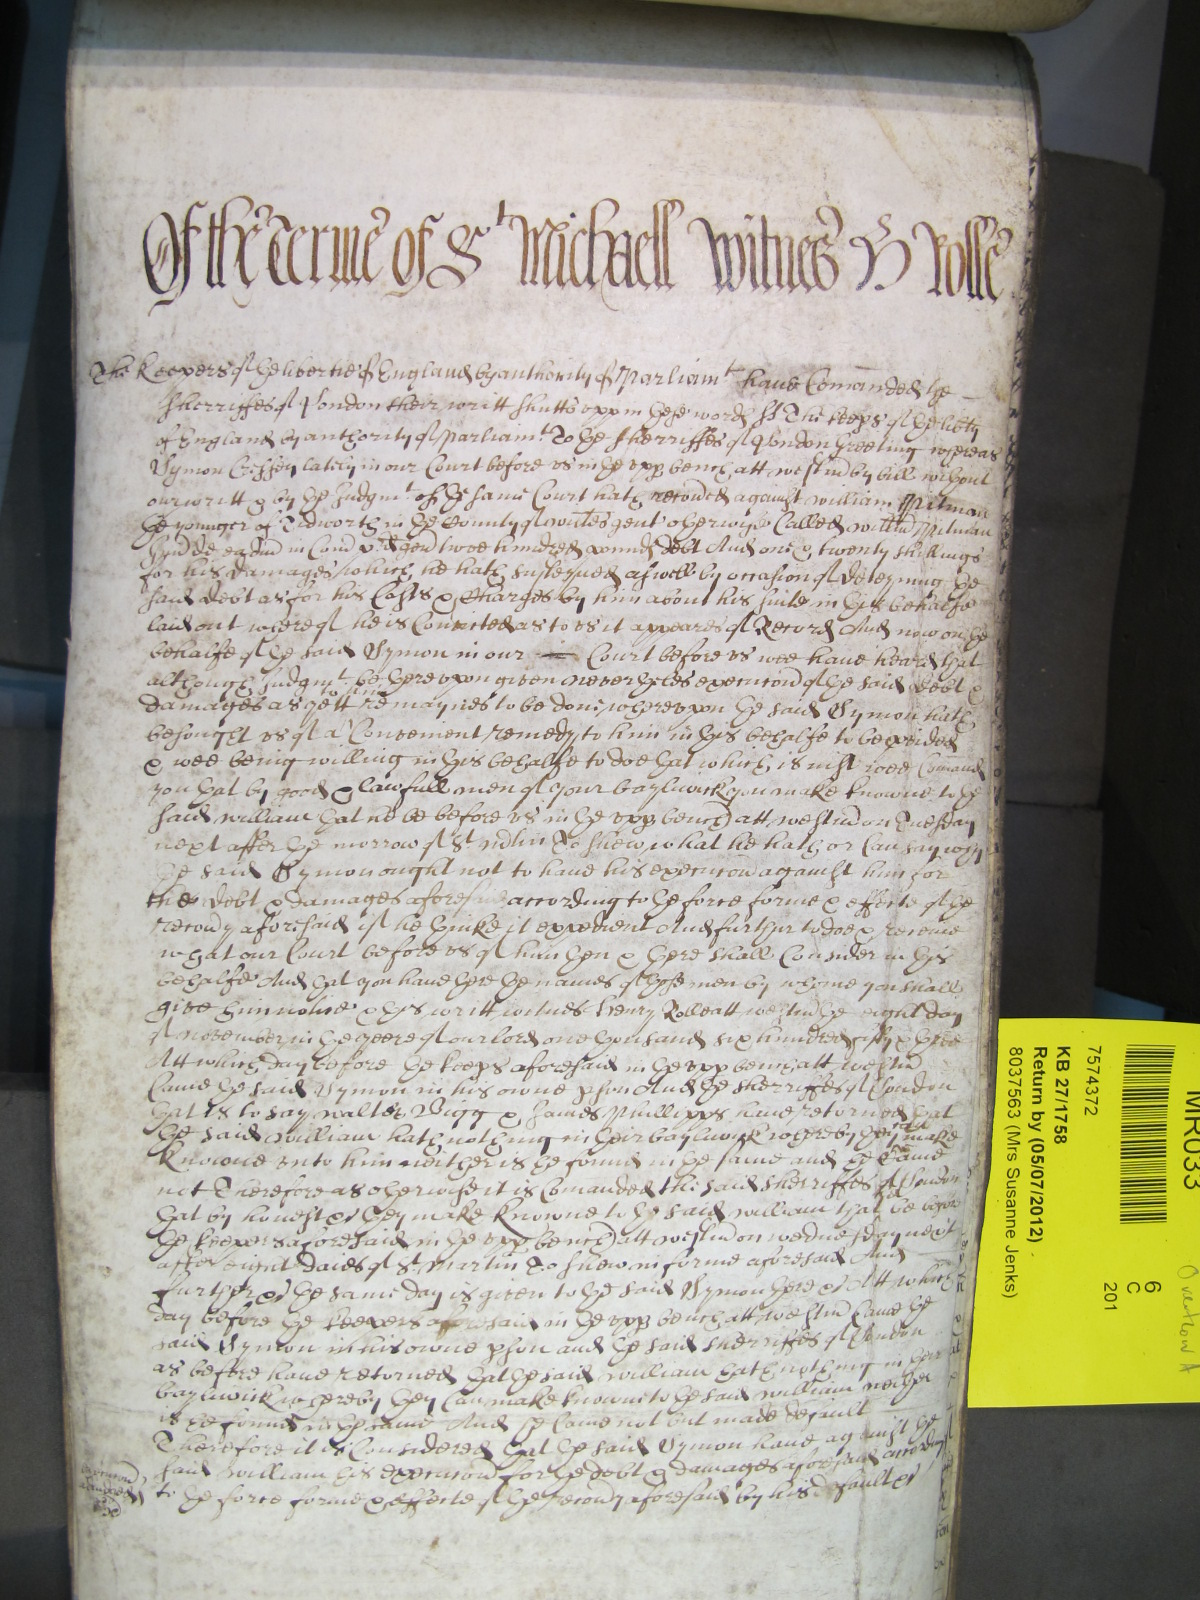 Of the Terme of St Michaell Witnes H Rolle
The Keepers of the libertie of England by authority of Parliamt have Comanded the
Sherriffes of London their writt shutt upp in these words ss The keeps of the liberty
of England by authority of Parliamt To the Sherriffes of London Greeting whereas
Symon lately in our Court before us in the upp bench att Westm by bill without
our writt & by the Judgmt of the same Court hath recoved against William Pitman
the younger of Tidworth in the County of gent otherwise Called Willm Pitman
two hundred pounds debt And one & twenty shillings
for his damages which he hath susteyned aswell by occasion of deteyning the
said debt as for his Costs & Charges by him about his suite in this behalfe
laid out whereof he is Convicted as to us it appeares of Record And now on the
behalfe of the said Symon in our Court before us wee have heard that
although Judgmt be thereupon given neverthelesse execucon of the said debt &
damages as yett to him remaynes to be done whereupon the said Symon hath
besought us of a Convenient remedy to him in this behalfe to be provided
& wee being willing in this behalfe to doe that which is just wee Comand
you that by good & lawfull men of your baylywick you make knowne to the
said William that he be before us in the upp bench att Westm on Tuesday
next after the morrow of St Martin To shew what he hath or Can say why
the said Symon ought not to have his execucon against him for
the debt & damages aforesaid according to the force forme & effecte of the
recovry aforesaid if he thinke it expedient And further to doe & receive
what our Court before us of him then & there shall Consider in this
behalfe And that you have there the names of those men by whome you shall
give him notice & this writt witnes Henry Rolle att Westm the eight day
of November in the yeere of our lord one thousand six hundred fifty & three
Att which day before the keeps aforesaid in the upp bench att Westm
Came the said Symon in his owne pson And the Sherriffes of London
that is to say Walter Bigg & James Phillipps have returned that
the said William hath nothing in their baylywick whereby they can make
knowne unto him neither is he found in the same and he Came
not Therefore as otherwise it is Comanded the said Sherriffes of London
that by honest &c they make knowne to the said William that he be before
the keepers aforesaid in the upp bench att Westm on Wednesday next
after eight daies of St Martin To shew in forme aforesaid And
further &c the same day is given to the said Symon there &c Att which
day before the keepers aforesaid in the upp bench att Westm Came the
said Symon in his owne pson and the said Sherriffes of London
as before have returned that the said William hath nothing in their
baylywick whereby they Can make knowne to the said William neither
is he found in the same And he Came not but made default
Therefore it is Considered that the said Symon have against the
said William his execucon for the debt & damages aforesaid according
to the force forme & effecte of the recovry aforesaid by his default &c
MR033
6
C
201
7574372
KB 27/1758
Return by (05/07/2012)
8037563 (Mrs Susanne Jenks)
Overflow A